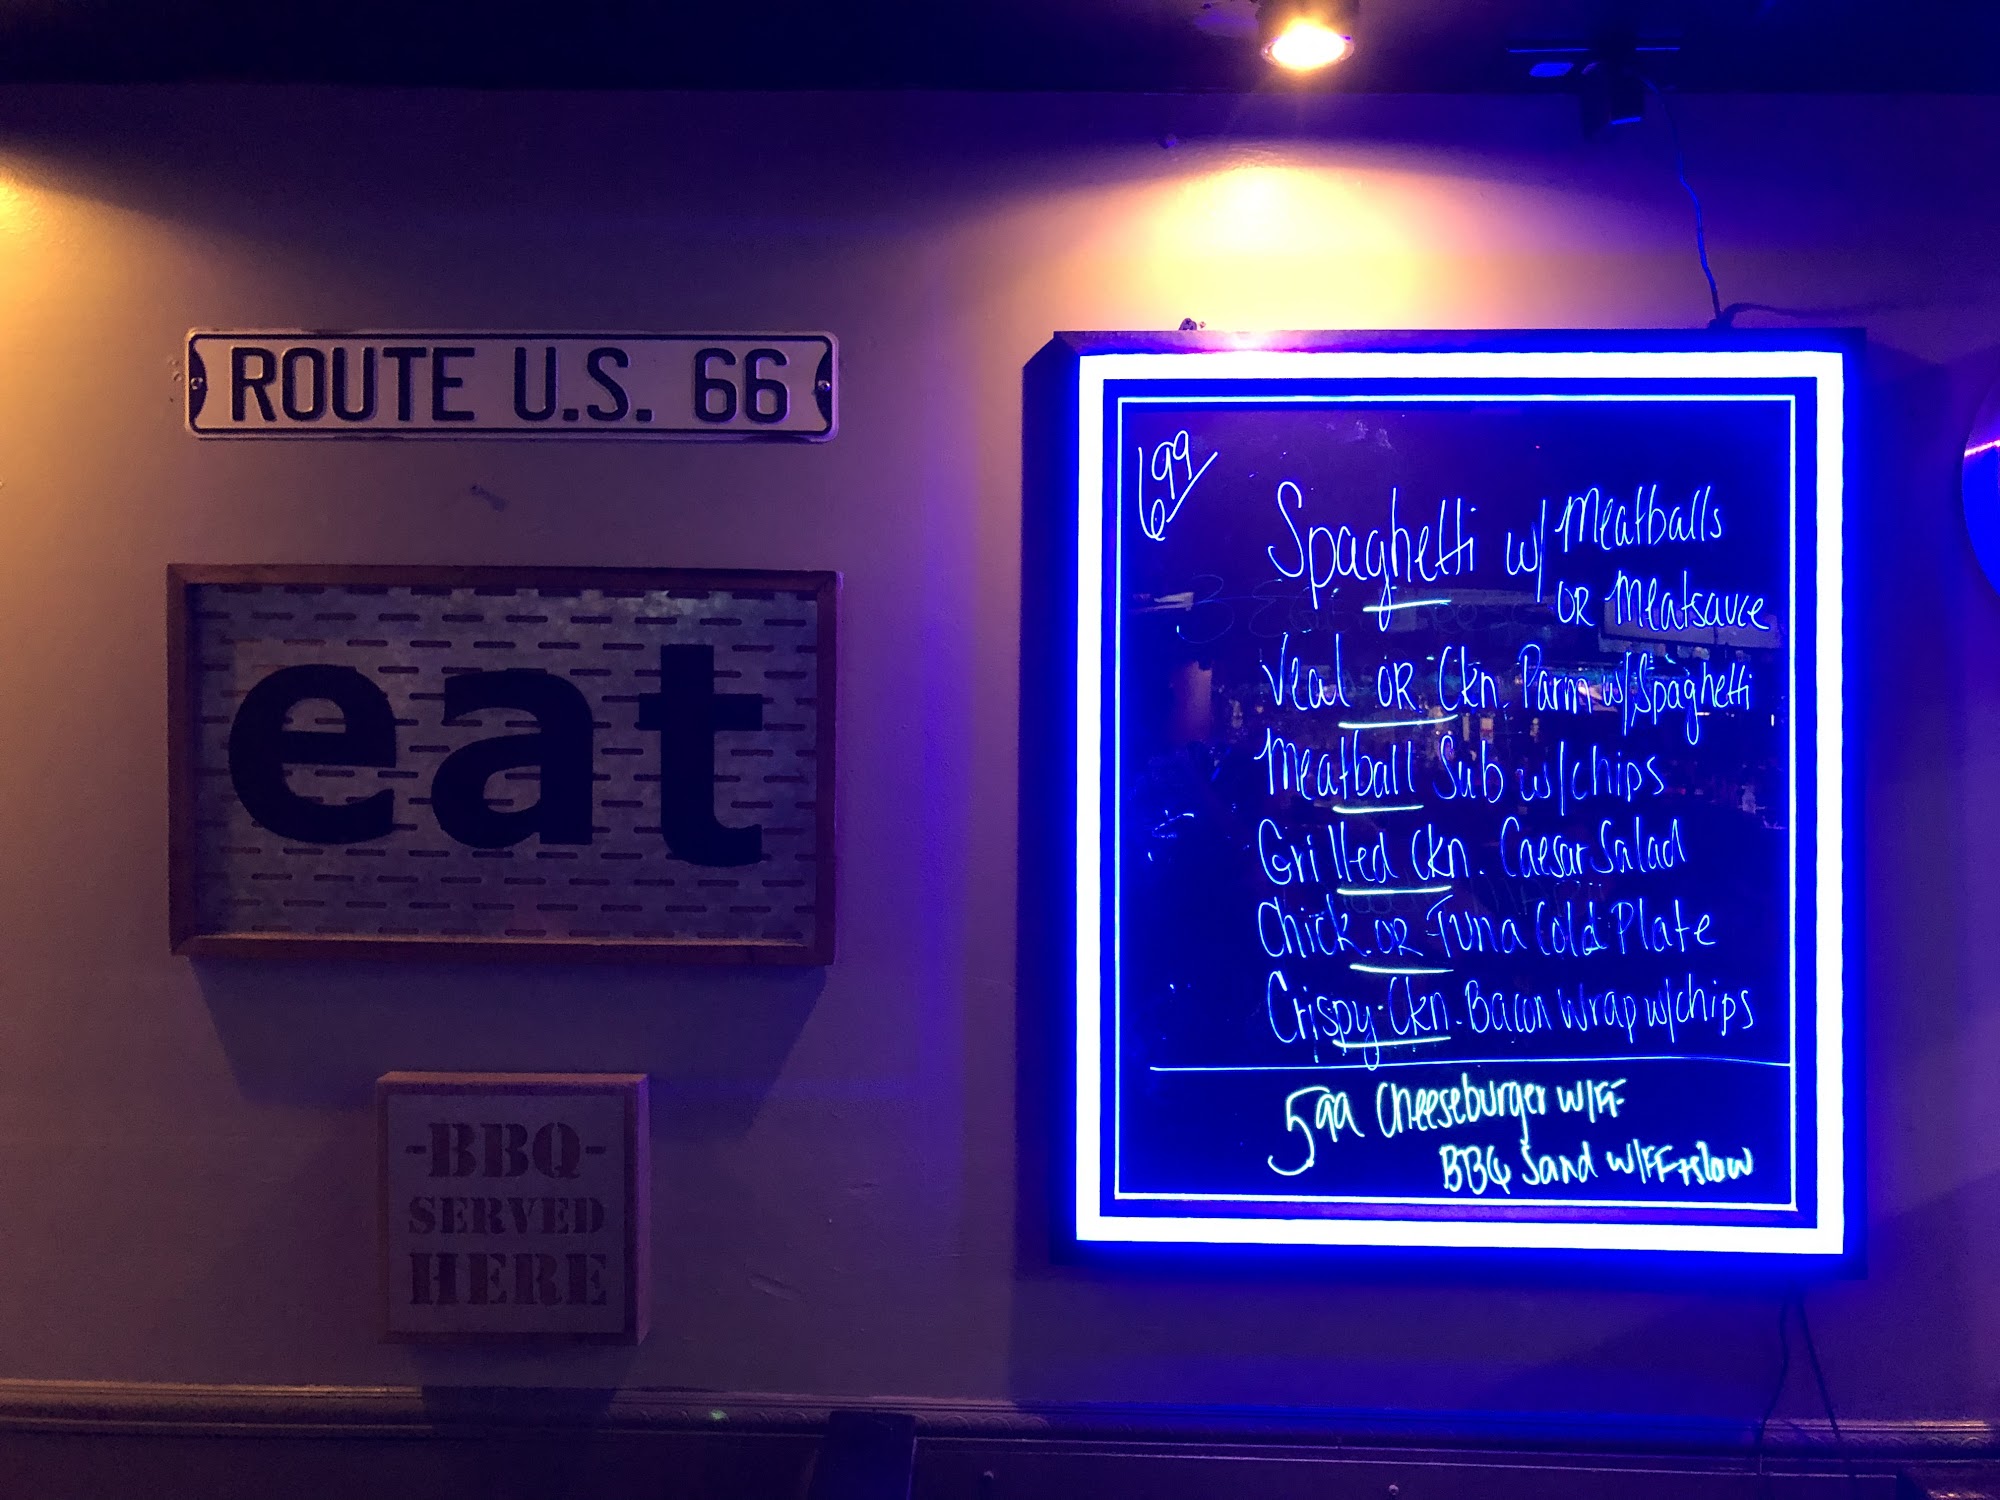 ROUTE U.S. 66
eat
-BBQ-
SERVED
HERE
6 99
Spaghetti w/ Meatballs
OR Meatsauce
Veal OR Ckn. Parm w/Spaghetti
Meatball Sub w/chips
Grilled Ckn. Caesar Salad
Chick OR Tuna Cold Plate
Crispy Ckn. Bacon Wrap w/chips
5 99 Cheeseburger w/FF
BBQ Sand w/FF+slow